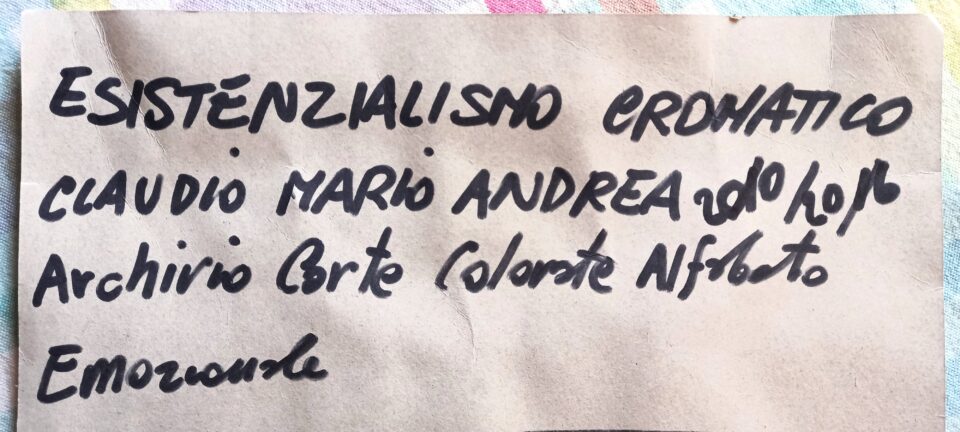 ESISTENZIALISMO CROMATICO
CLAUDIO MARIO ANDREA
Archivio Carte Colorate Alfabeto
Emozionale